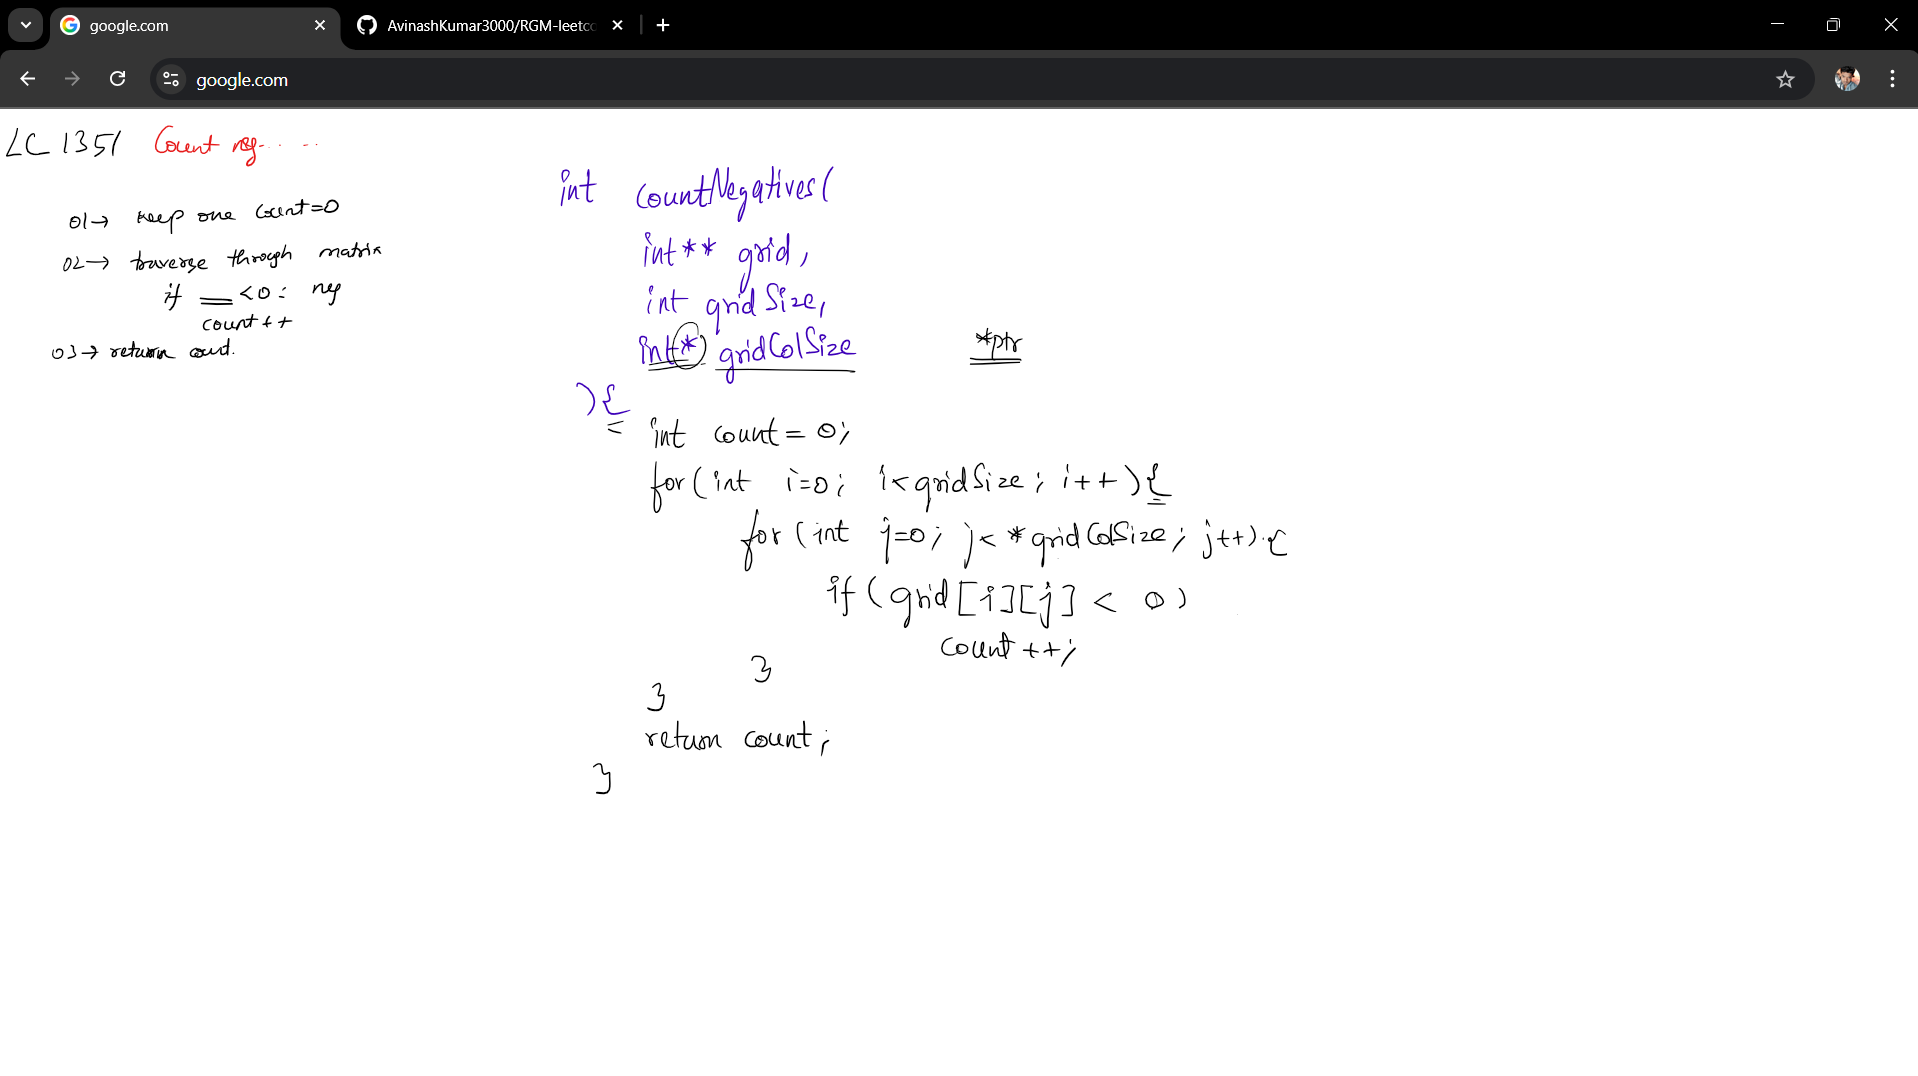 google.com
AvinashKumar3000/RGM-leetc
google.com
LC 1351 Count neg.....
01→ keep one count=0
02→ traverse through matrix
if __ <0 : neg
count++
03→ return count.
int countNegatives(
int** grid,
int gridSize,
int* gridColSize
*ptr
){
int count = 0;
for(int i=0; i<gridSize; i++){
for(int j=0; j< *gridColSize; j++){
if(grid[i][j] < 0)
count++;
}
}
return count;
}